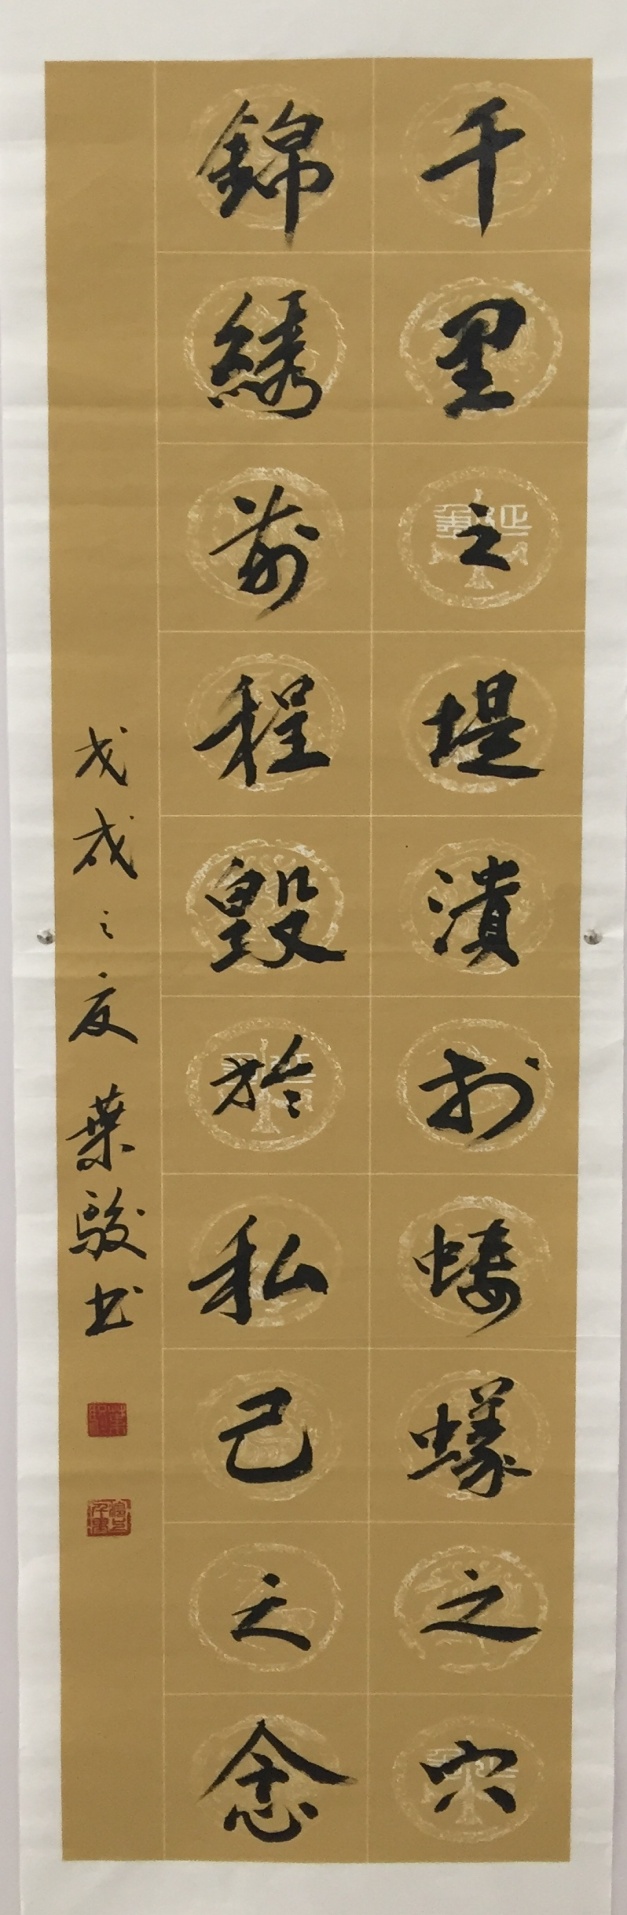 千里之堤潰於螻蟻之穴
錦綉前程毀於私己之念
戊戌之夏葉駿书